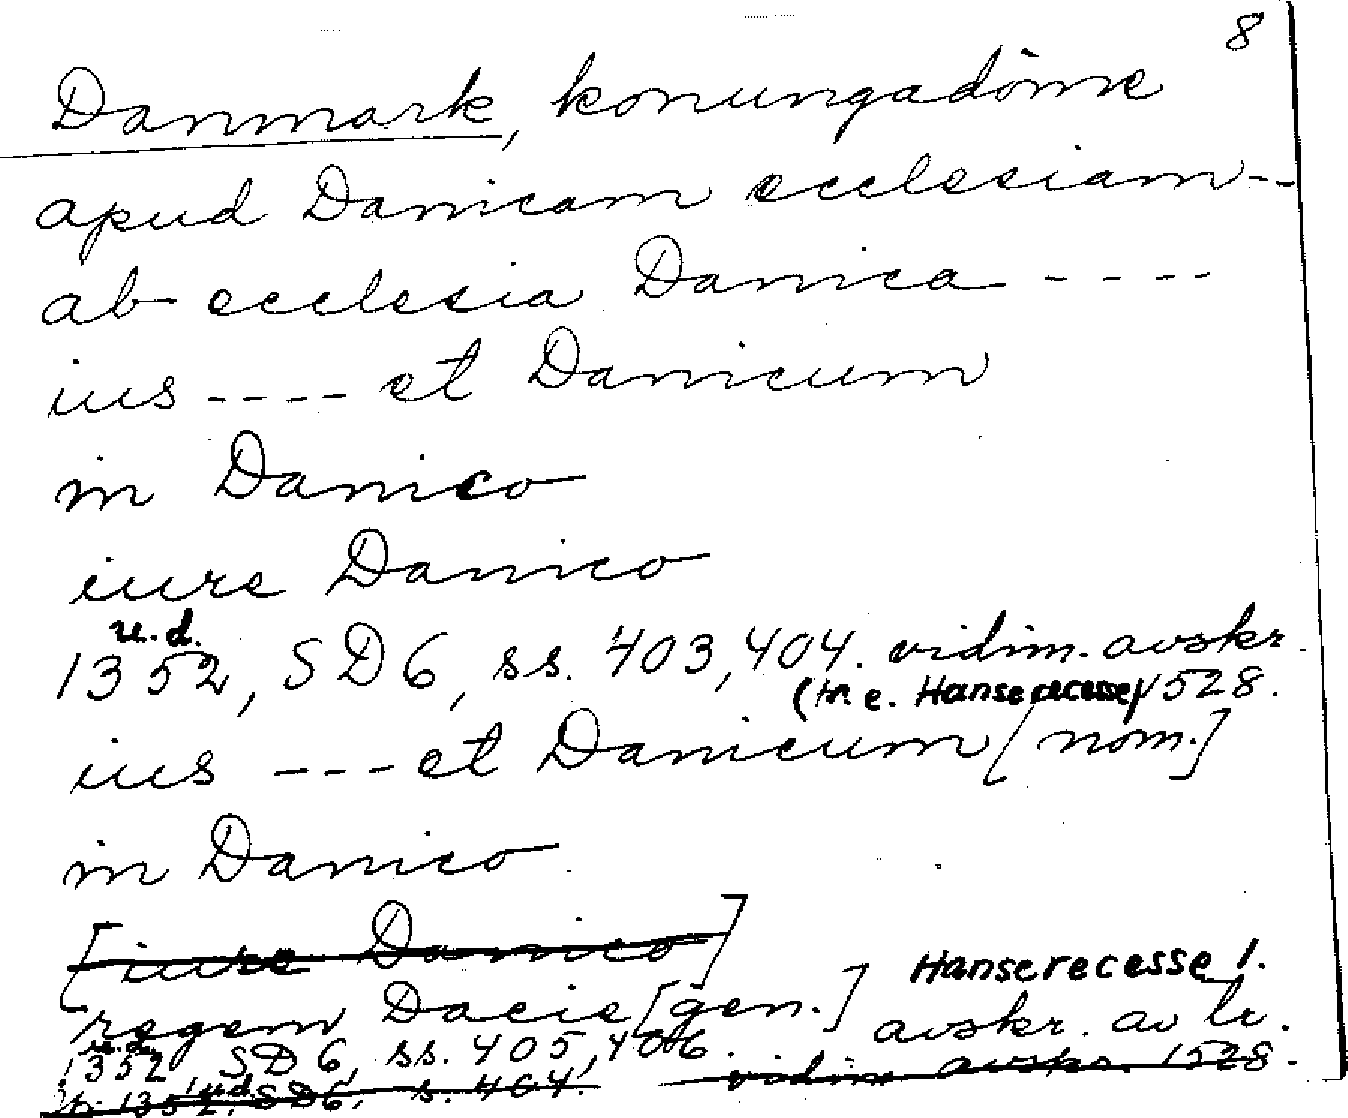 8
Danmark, konungadöme
apud Danicam ecclesiam--
ab ecclesia Danica ----
ius ---- et Danicum
in Danico
iure Danico
u.d.
1352, SD6, ss. 403, 404. vidim. avskr.
(m e. Hanserecesse) 1528.
ius --- et Danicum [nom.]
in Danico.
[iure Danico]
regem Dacie [gen.] Hanserecesse 1.
u.d. avskr. av br.
1352 SD6, ss. 405, 406. vidim. avskr. 1528.
1352, u.d. SD6, s. 404.